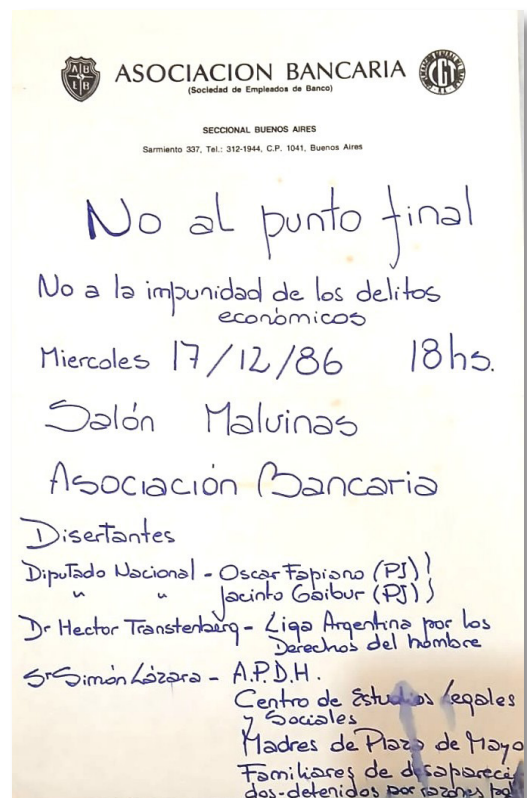 ASOCIACION BANCARIA
(Sociedad de Empleados de Banco)
SECCIONAL BUENOS AIRES
Sarmiento 337, Tel.: 312-1944, C.P. 1041, Buenos Aires
No al punto final
No a la impunidad de los delitos
económicos
Miercoles 17/12/86 18 hs.
Salón Malvinas
Asociación Bancaria
Disertantes
Diputado Nacional - Oscar Fapiano (PJ)
" " Jacinto Gaibur (PJ)
Dr Hector Transtenberg - Liga Argentina por los
Derechos del hombre
Sr Simón Lázara - A.P.D.H.
Centro de Estudios Legales
y Sociales
Madres de Plaza de Mayo
Familiares de desapareci
dos-detenidos por razones